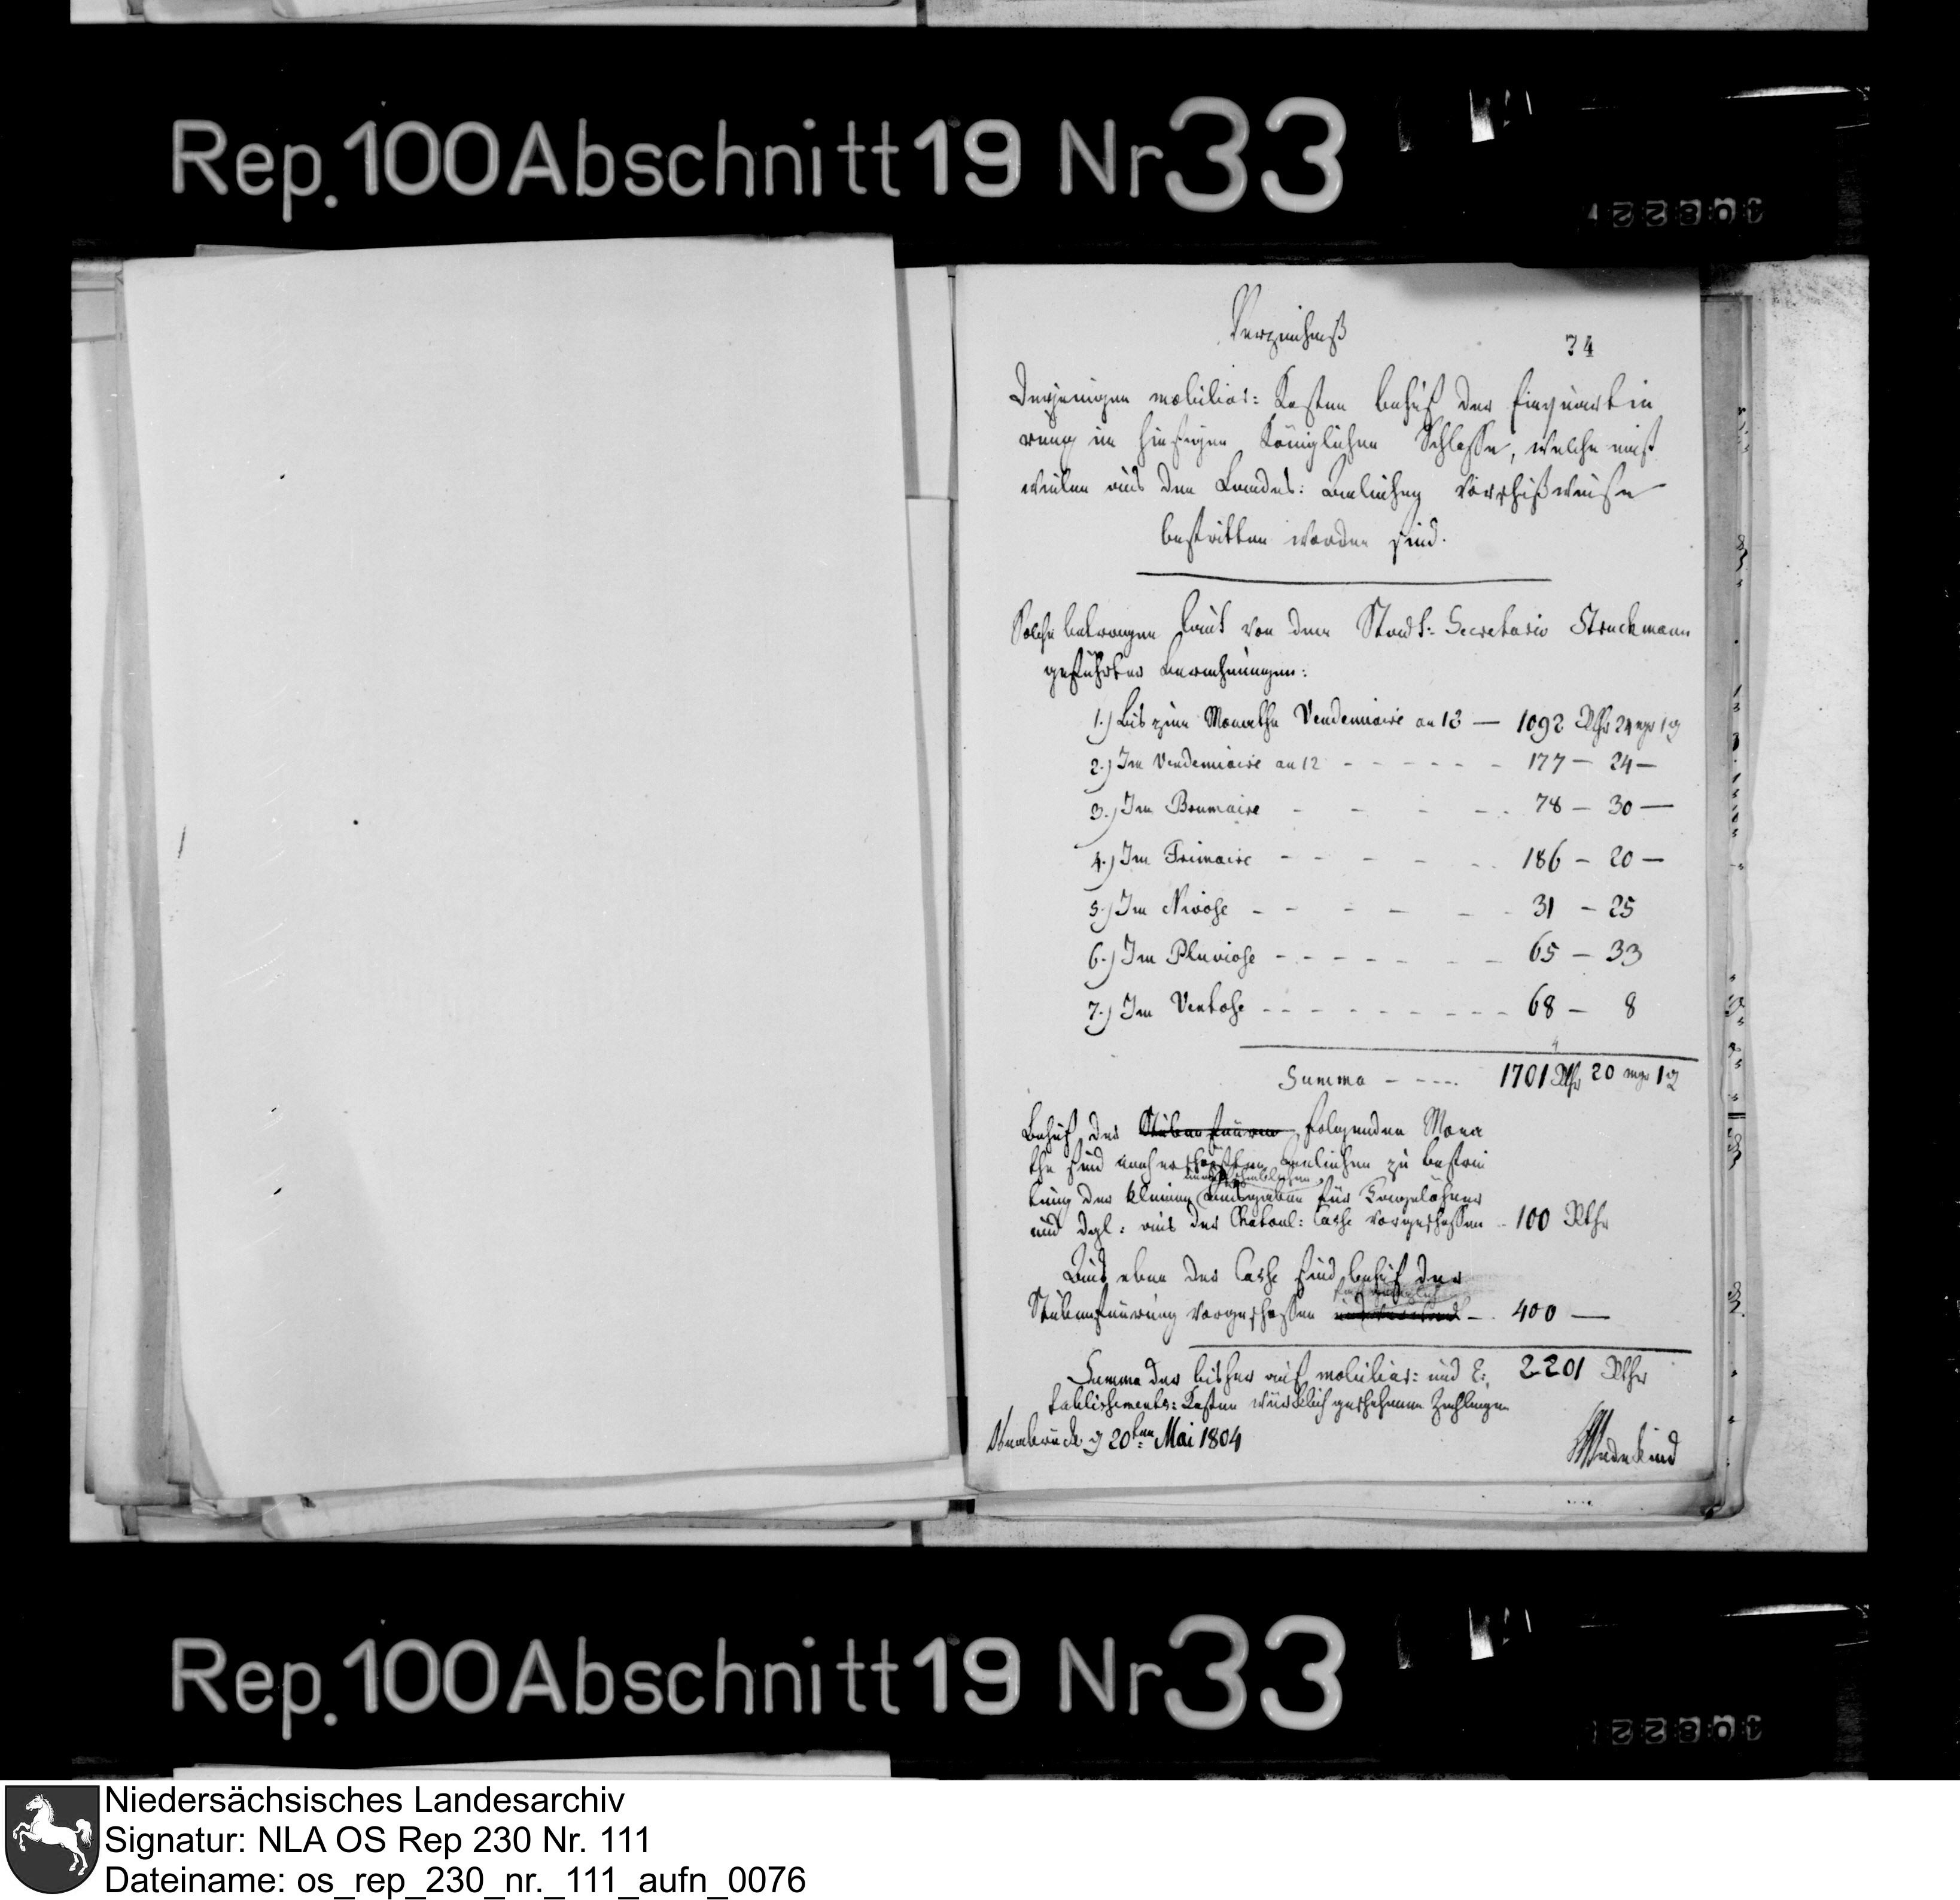 Rep. 100 Abschnitt 19 Nr 33
Verzeichniß
74
Derjenigen mobiliar: Kosten behuf der Einquartie
rung im hiesigen Königlichen Schlosse, welche einst
weilen aus den Landes: Anleihen vorschußweise
bestritten worden sind.
Solche betragen laut von dem Stadt: Secretario Struckmann
geführter Berechnungen:
1.) Bis zum Monathe Vendemiaire an 12 — 1092 Rthr 24 mgr 1 ₰
2.) Im Vendemiaire an 12 - - - - - - 177 — 24 —
3.) Im Brumaire - - - - - 78 — 30 —
4.) Im Frimaire - - - - - - 186 — 20 —
5.) Im Nivose - - - - - - 31 — 25
6.) Im Pluviose - - - - - - - 65 — 33
7.) Im Ventose - - - - - - - - - 68 — 8
Summa - - - - - 1701 Rthr 20 mgr 1 ₰
Behuf der folgenden Mona
the sind nach Anleihen zu bestrei
tung der kleinen Ausgaben für Tagelöhner
und dgl: aus der Casse vorgeschossen - 100 Rthr
Aus eben der Casse sind behuf der
Stubenfeuerung vorgeschossen - 400 —
Summa der bisher auf mobiliar: und E: 2201 Rthr
tablissements: Kosten würklich geschehenen Zahlungen
Osnabrück d 20ten Mai 1804
Wedekind
Rep. 100 Abschnitt 19 Nr 33
Niedersächsisches Landesarchiv
Signatur: NLA OS Rep 230 Nr. 111
Dateiname: os_rep_230_nr._111_aufn_0076